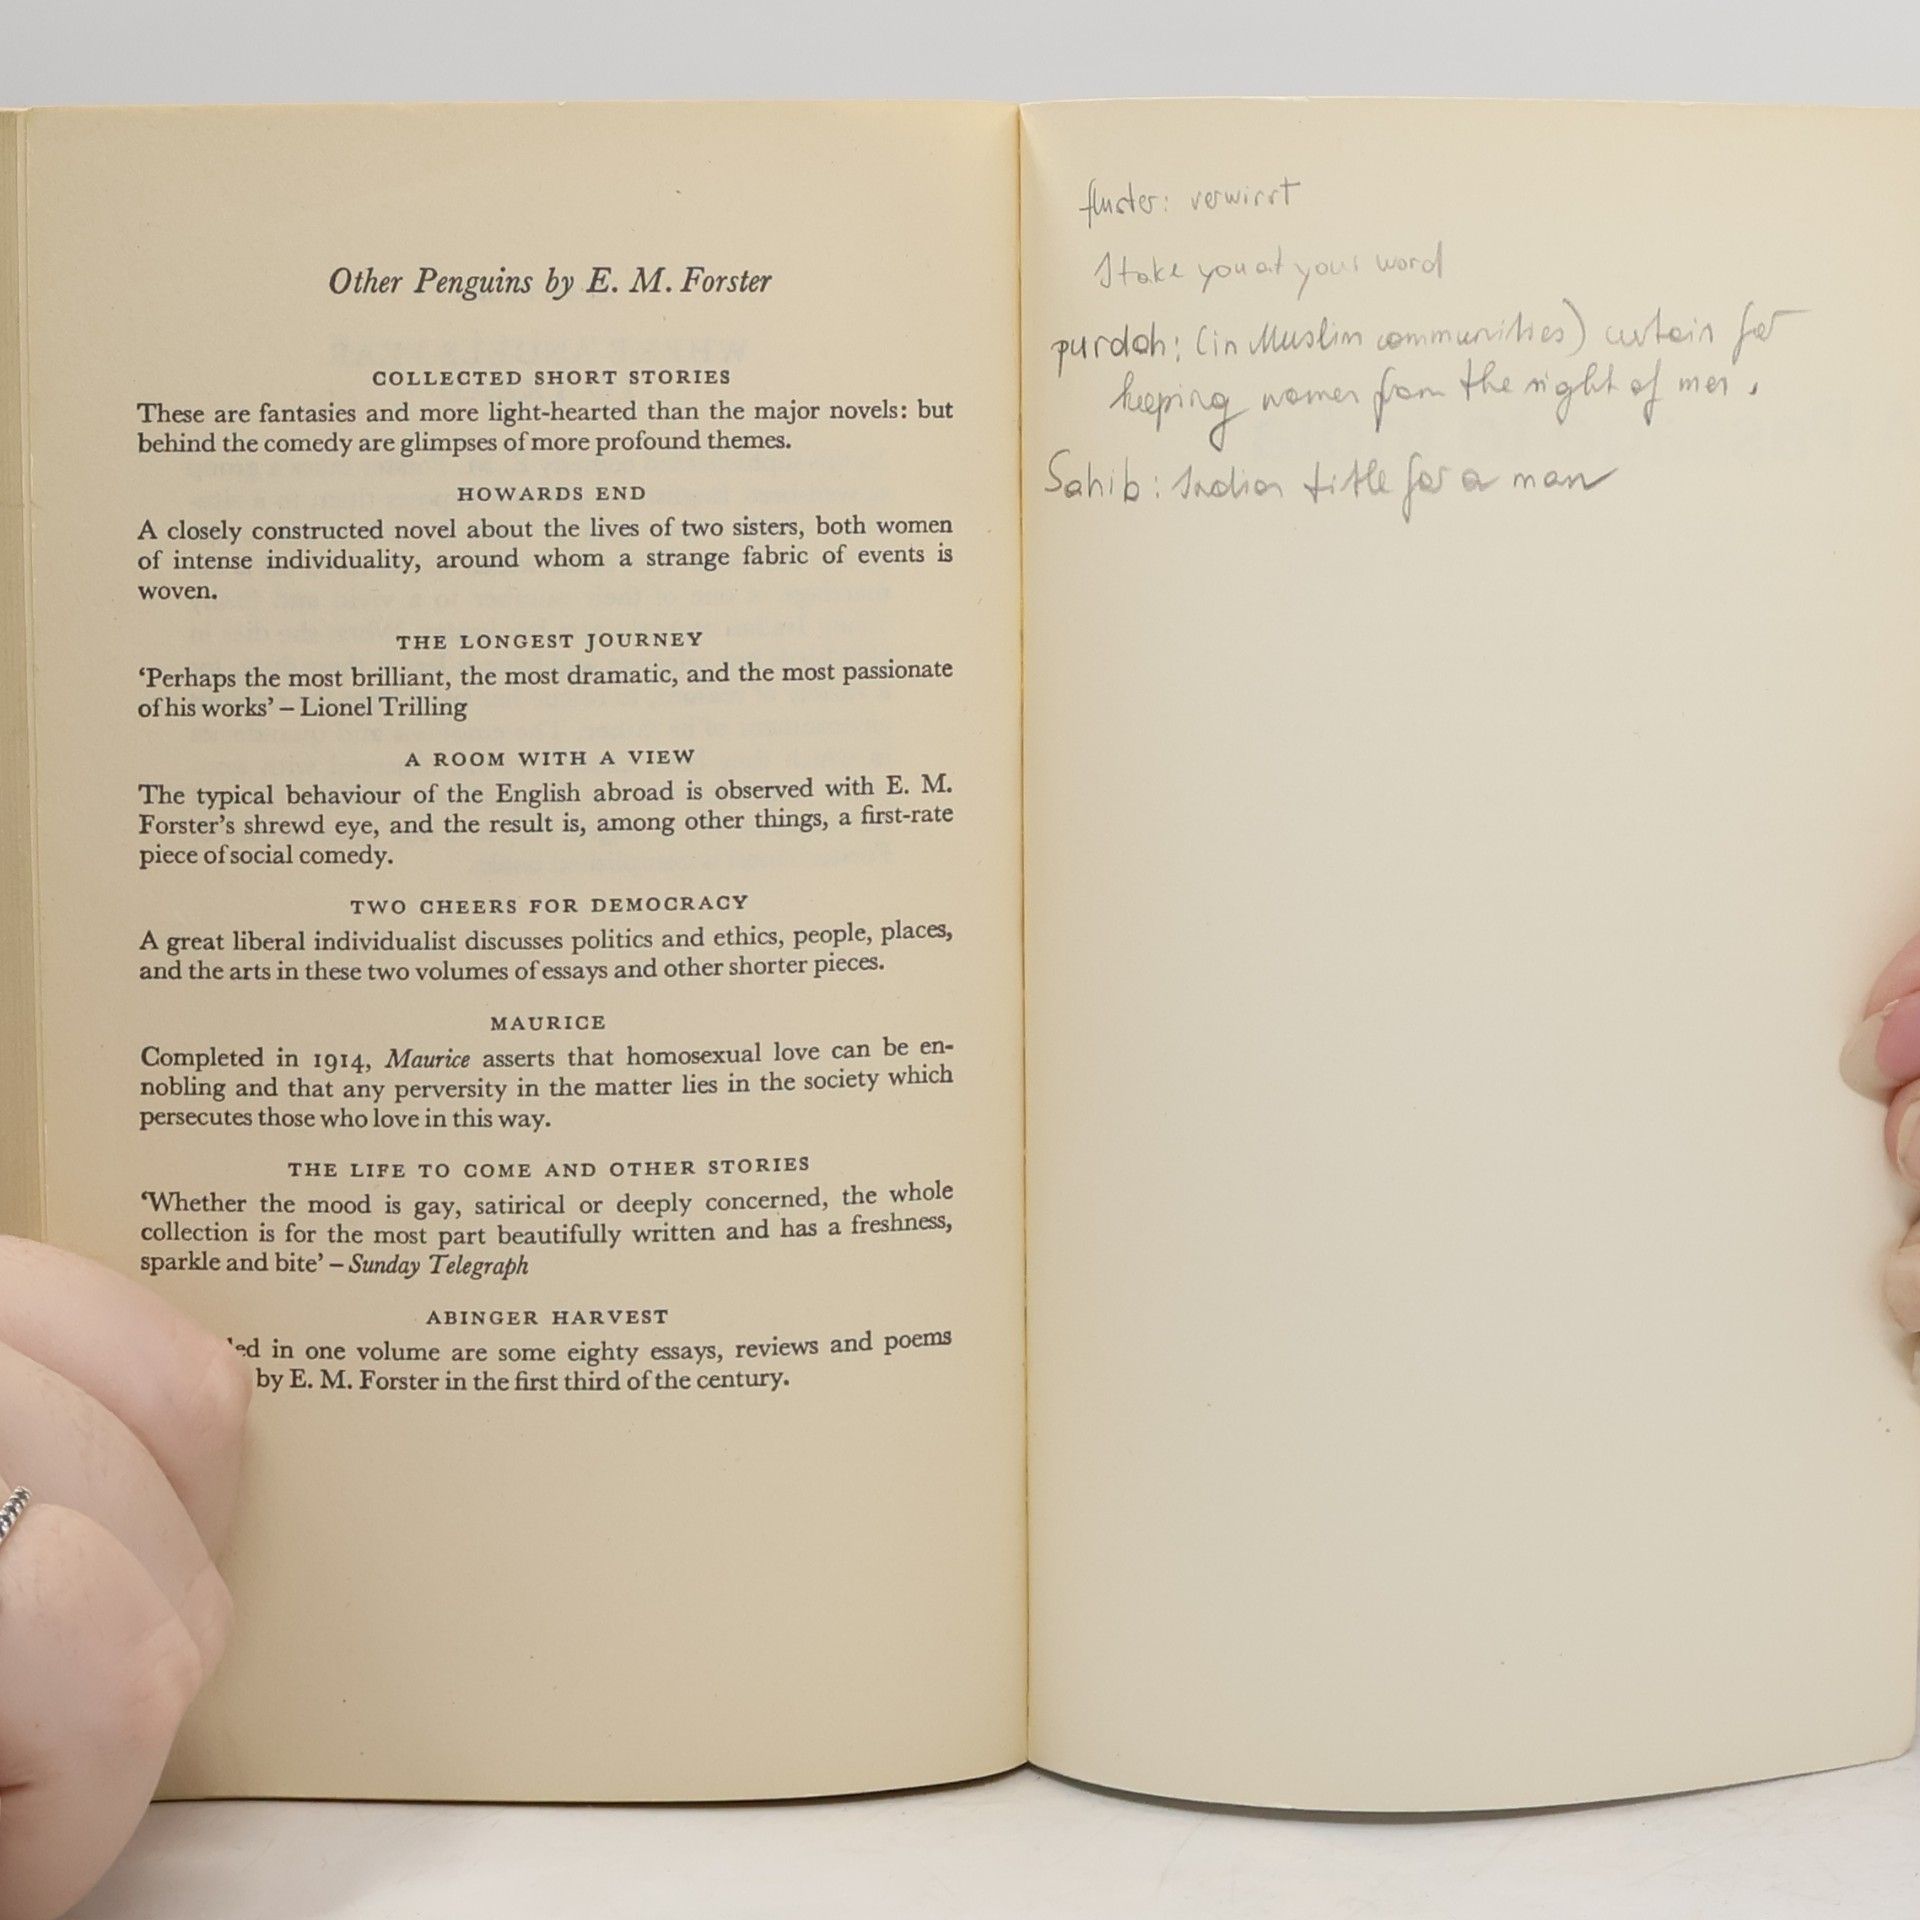 Other Penguins by E. M. Forster
COLLECTED SHORT STORIES
These are fantasies and more light-hearted than the major novels: but
behind the comedy are glimpses of more profound themes.
HOWARDS END
A closely constructed novel about the lives of two sisters, both women
of intense individuality, around whom a strange fabric of events is
woven.
THE LONGEST JOURNEY
‘Perhaps the most brilliant, the most dramatic, and the most passionate
of his works’ – Lionel Trilling
A ROOM WITH A VIEW
The typical behaviour of the English abroad is observed with E. M.
Forster’s shrewd eye, and the result is, among other things, a first-rate
piece of social comedy.
TWO CHEERS FOR DEMOCRACY
A great liberal individualist discusses politics and ethics, people, places,
and the arts in these two volumes of essays and other shorter pieces.
MAURICE
Completed in 1914, Maurice asserts that homosexual love can be en-
nobling and that any perversity in the matter lies in the society which
persecutes those who love in this way.
THE LIFE TO COME AND OTHER STORIES
‘Whether the mood is gay, satirical or deeply concerned, the whole
collection is for the most part beautifully written and has a freshness,
sparkle and bite’ – Sunday Telegraph
ABINGER HARVEST
in one volume are some eighty essays, reviews and poems
by E. M. Forster in the first third of the century.
fluster: verwirrt
I take you at your word
purdah: (in Muslim communities) curtain for
keeping women from the sight of men.
Sahib: Indian title for a man